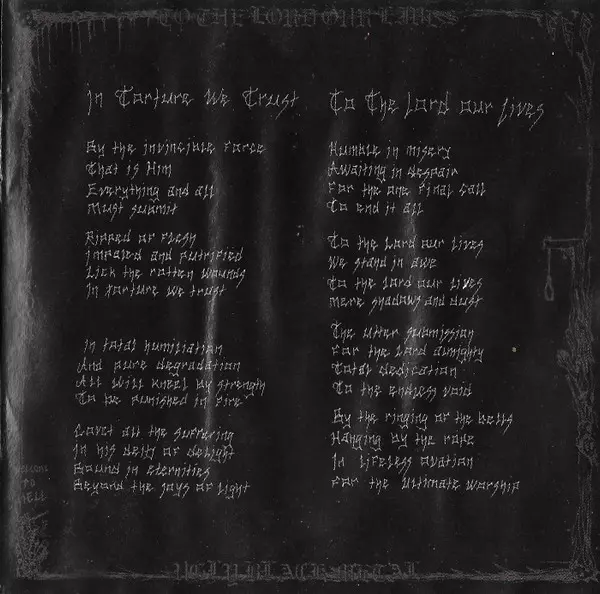 TO THE LORD OUR LIVES
In Torture We Trust
By the invincible force
That is Him
Everything and all
Must submit
Ripped of flesh
Impaled and putrified
Lick the rotten wounds
In torture we trust
In total humiliation
And pure degradation
All will kneel by strength
To be punished in fire
Covet all the suffering
In his deity of delight
Bound in eternities
Beyond the joys of light
To The Lord our lives
Humble in misery
Awaiting in despair
For the one final call
To end it all
To the Lord our lives
We stand in awe
To the lord our lives
mere shadows and dust
The utter submission
For the Lord almighty
Total dedication
To the endless void
By the ringing of the bells
Hanging by the rope
In lifeless ovation
For the ultimate worship
WELCOME
TO
HELL
UGLY BLACK METAL